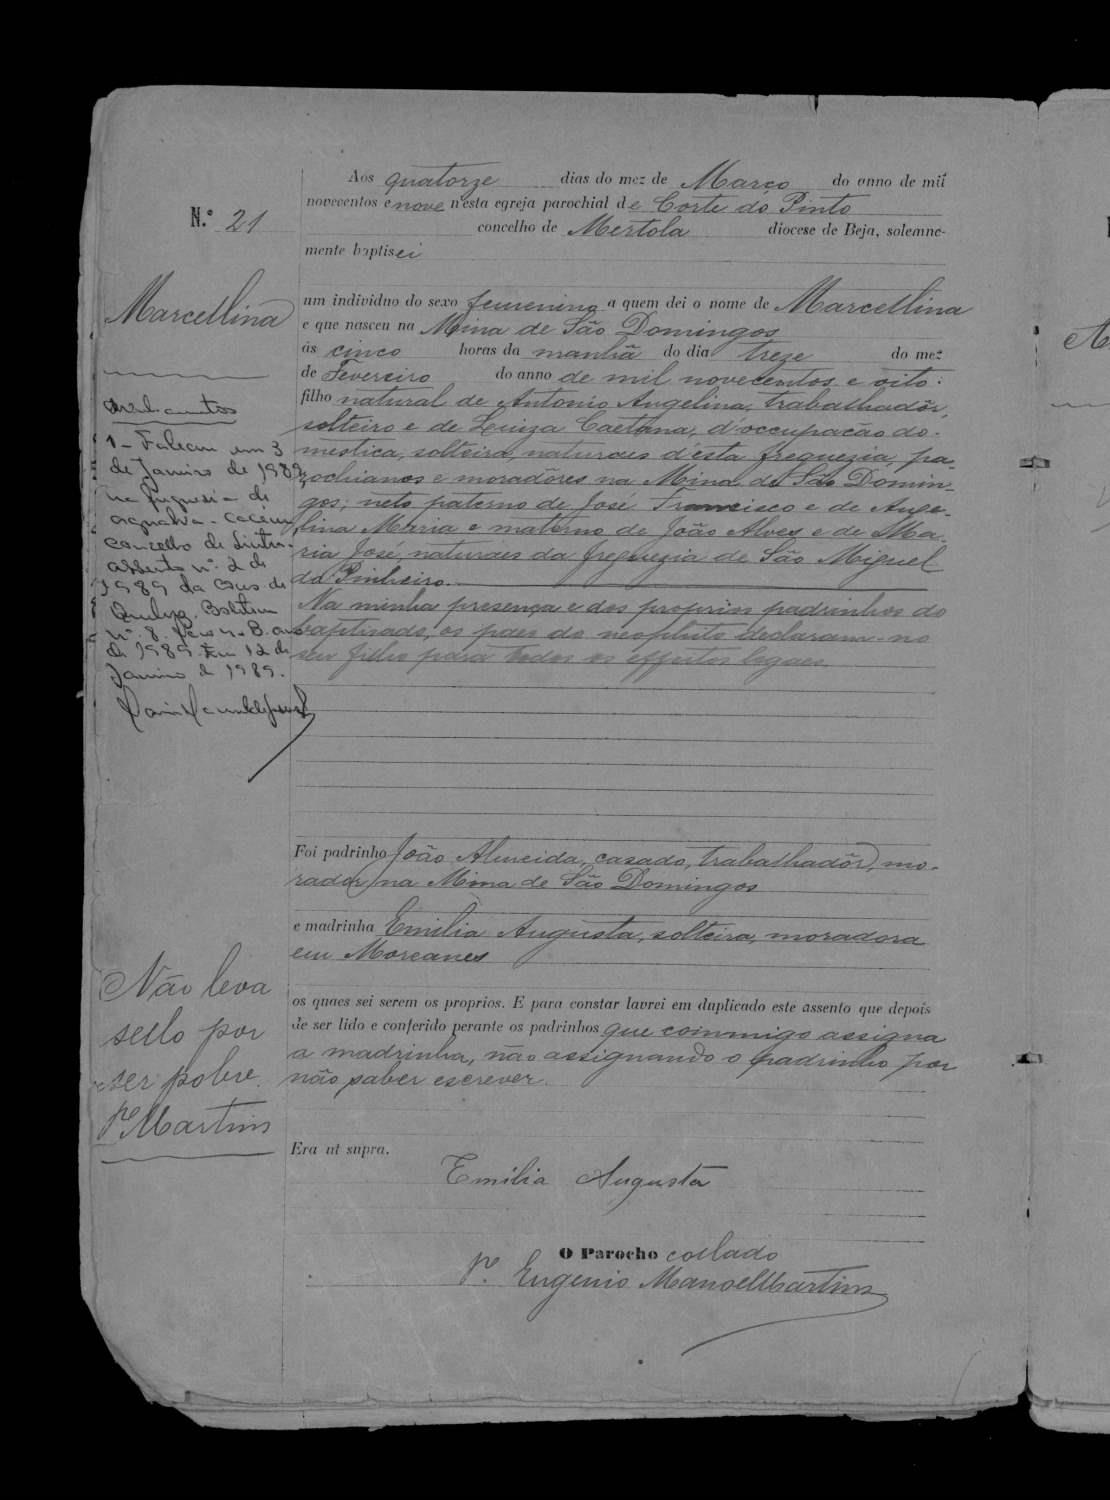 Aos quatorze dias do mez de Março do anno de mil
novecentos e nove n'esta egreja parochial de Corte do Pinto
N.º 21
concelho de Mertola diocese de Beja, solemne-
mente baptisei
Marcellina
um individuo do sexo femenino a quem dei o nome de Marcellina
e que nasceu na Mina de São Domingos
ás cinco horas da manhã do dia treze do mez
de Fevereiro do anno de mil novecentos e oito:
filho natural de Antonio Angelina, trabalhadôr,
solteiro e de Luiza Caetana, d'occupação do-
mestica, solteira, naturaes d'ésta freguezia, pa-
rochianos e moradôres na Mina de São Domin-
gos; neto paterno de José Francisco e de Ange-
lina Maria e materno de João Alves e de Ma-
ria José, naturáes da freguezia de São Miguel
do Pinheiro.
Na minha presença e dos proprios padrinhos do
baptisado, os paes do neophito declaram-no
seu filho para todos os effeitos legaes.
1 - Faleceu em 3
de Janeiro de 1989,
na freguesia de
Agualva - Cacém
concelho de Sintra.
Assento nº 2 de
1989 da Cons. de
Queluz. Boletim
de 1989. Em 12 de
Janeiro de 1989.
Foi padrinho João Almeida, casado, trabalhadôr, mo-
rador na Mina de São Domingos
e madrinha Emilia Augusta, solteira, moradora
em Moreanes
Não leva
sello por
ser pobre.
P.e Martins
os quaes sei serem os proprios. E para constar lavrei em duplicado este assento que depois
de ser lido e conferido perante os padrinhos que commigo assigna
a madrinha, não assignando o padrinho por
não saber escrever.
Era ut supra.
Emilia Augusta
O Parocho collado
P.e Eugenio Manoel Martins